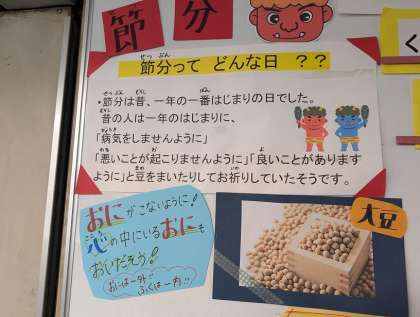 節分
節分って どんな日 ??
・節分は昔、一年の一番はじまりの日でした。
昔の人は一年のはじまりに、
「病気をしませんように」
「悪いことが起こりませんように」「良いことがあります
ように」と豆をまいたりしてお祈りしていたそうです。
おにがこないように!
心の中にいるおにも
おいだそう!
おにはー外!
ふくはー内!
大豆
く